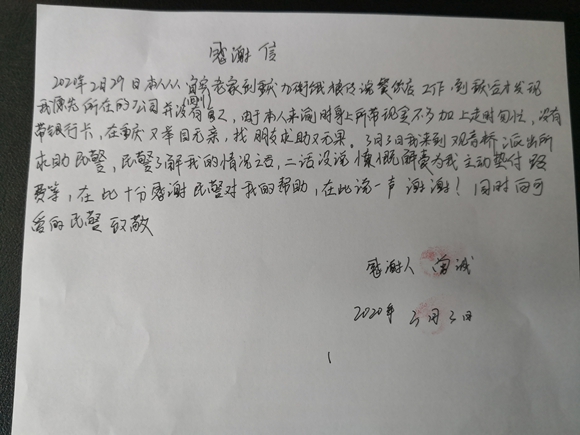 感谢信
2020年2月29日本人从自家老家到
我原先所在的公司并没有复工，由于本人来渝时身上所带现金不多加上走时匆忙，没有
带银行卡，在重庆又举目无亲，找朋友求助又无果。3月3日我来到观音桥派出所
求助民警，民警了解我的情况之后，二话没说慷慨解囊为我主动垫付路
费等，在此十分感谢民警对我的帮助，在此说一声谢谢！同时向可
爱的民警致敬
感谢人 曾诚
2020年3月3日